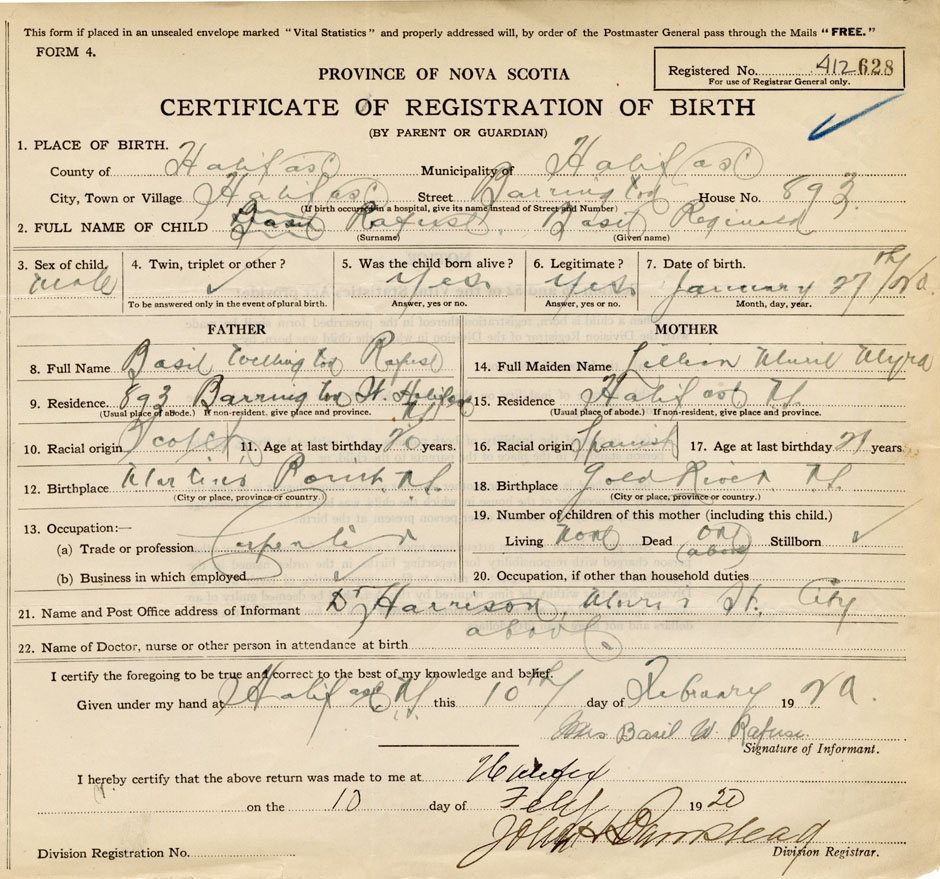 This form if placed in an unsealed envelope marked "Vital Statistics" and properly addressed will, by order of the Postmaster General pass through the Mails "FREE."
FORM 4.
Registered No. 412628
For use of Registrar General only.
PROVINCE OF NOVA SCOTIA
CERTIFICATE OF REGISTRATION OF BIRTH
(BY PARENT OR GUARDIAN)
1. PLACE OF BIRTH.
County of Halifax Municipality of Halifax
City, Town or Village Halifax Street Barrington House No. 893
(If birth occurs in a hospital, give its name instead of Street and Number)
2. FULL NAME OF CHILD Basil Rafuse, Basil Reginald
(Surname) (Given name)
3. Sex of child. male
4. Twin, triplet or other?
To be answered only in the event of plural birth.
5. Was the child born alive? Yes.
Answer, yes or no.
6. Legitimate? Yes.
Answer, yes or no.
7. Date of birth. January 27th/20.
Month, day, year.
FATHER
8. Full Name Basil Wellington Rafuse
9. Residence. 893 Barrington St. Halifax
(Usual place of abode.) If non-resident, give place and province.
10. Racial origin Scotch 11. Age at last birthday years.
12. Birthplace
(City or place, province or country.)
13. Occupation:—
(a) Trade or profession Carpenter
(b) Business in which employed
MOTHER
14. Full Maiden Name Lillian Myra
15. Residence Halifax N.S.
(Usual place of abode.) If non-resident, give place and province.
16. Racial origin Spanish 17. Age at last birthday 21 years.
18. Birthplace Gold River, N.S.
(City or place, province or country.)
19. Number of children of this mother (including this child.)
Living none Dead one (above) Stillborn
20. Occupation, if other than household duties
21. Name and Post Office address of Informant Dr Harrison, Morris St. City
above
22. Name of Doctor, nurse or other person in attendance at birth
I certify the foregoing to be true and correct to the best of my knowledge and belief.
Given under my hand at Halifax N.S. this 10th day of February 1920.
Mrs Basil W. Rafuse
Signature of Informant.
I hereby certify that the above return was made to me at Halifax
on the 10 day of Feby 1920
John H Barnstead
Division Registration No. Division Registrar.